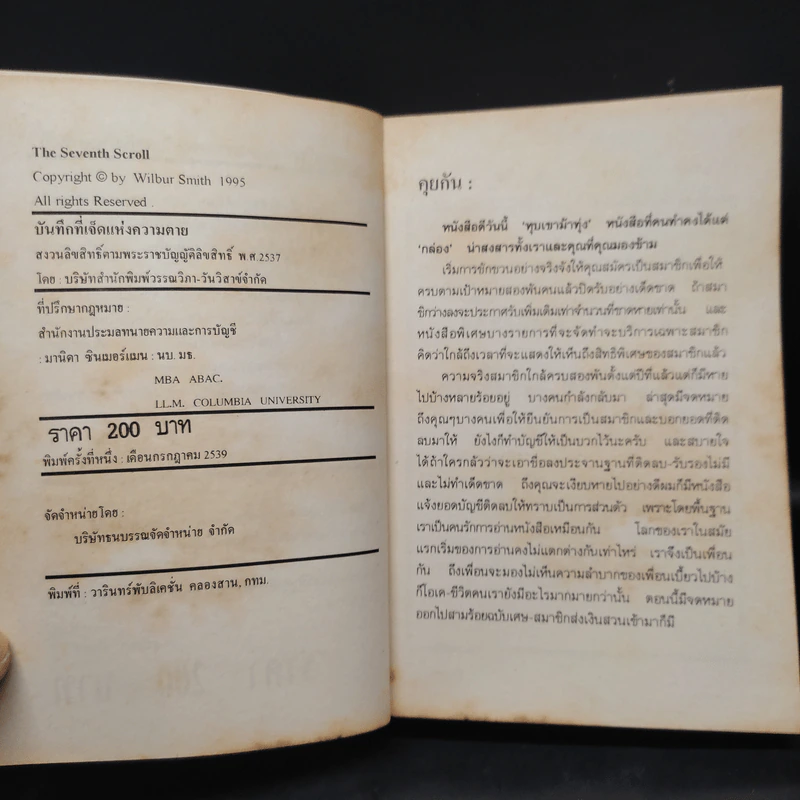 The Seventh Scroll
Copyright © by Wilbur Smith 1995
All rights Reserved .
บันทึกที่เจ็ดแห่งความตาย
สงวนลิขสิทธิ์ตามพระราชบัญญัติลิขสิทธิ์ พ.ศ.2537
โดย : บริษัทสำนักพิมพ์วรรณวิภา-วันวิสาข์จำกัด
ที่ปรึกษากฎหมาย :
สำนักงานประมลทนายความและการบัญชี
: มานิดา ซินเมอร์แมน : นบ. มธ.
MBA ABAC.
LL.M. COLUMBIA UNIVERSITY
ราคา 200 บาท
พิมพ์ครั้งที่หนึ่ง : เดือนกรกฎาคม 2539
จัดจำหน่ายโดย :
บริษัทธนบรรณจัดจำหน่าย จำกัด
พิมพ์ที่ : วารินทร์พับลิเคชั่น คลองสาน, กทม.
คุยกัน :
หนังสือดีวันนี้ 'ทุบเขาม้าทุ่ง' หนังสือที่คนทำคงได้แต่
'กล่อง' น่าสงสารทั้งเราและคุณที่คุณมองข้าม
เริ่มการชักชวนอย่างจริงจังให้คุณสมัครเป็นสมาชิกเพื่อให้
ครบตามเป้าหมายสองพันคนแล้วปิดรับอย่างเด็ดขาด ถ้าสมา
ชิกว่างลงจะประกาศรับเพิ่มเติมเท่าจำนวนที่ขาดหายเท่านั้น และ
หนังสือพิเศษบางรายการที่จะจัดทำจะบริการเฉพาะสมาชิก
คิดว่าใกล้ถึงเวลาที่จะแสดงให้เห็นถึงสิทธิพิเศษของสมาชิกแล้ว
ความจริงสมาชิกใกล้ครบสองพันตั้งแต่ปีที่แล้วแต่ก็มีหาย
ไปบ้างหลายร้อยอยู่ บางคนกำลังกลับมา ล่าสุดมีจดหมาย
ถึงคุณๆบางคนเพื่อให้ยืนยันการเป็นสมาชิกและบอกยอดที่ติด
ลบมาให้ ยังไงก็ทำบัญชีให้เป็นบวกไว้นะครับ และสบายใจ
ได้ถ้าใครกลัวว่าจะเอาชื่อลงประจานฐานที่ติดลบ-รับรองไม่มี
และไม่ทำเด็ดขาด ถึงคุณจะเงียบหายไปอย่างดีผมก็มีหนังสือ
แจ้งยอดบัญชีติดลบให้ทราบเป็นการส่วนตัว เพราะโดยพื้นฐาน
เราเป็นคนรักการอ่านหนังสือเหมือนกัน โลกของเราในสมัย
แรกเริ่มของการอ่านคงไม่แตกต่างกันเท่าไหร่ เราจึงเป็นเพื่อน
กัน ถึงเพื่อนจะมองไม่เห็นความลำบากของเพื่อนเบี้ยวไปบ้าง
ก็โอเค-ชีวิตคนเรายังมีอะไรมากมายกว่านั้น ตอนนี้มีจดหมาย
ออกไปสามร้อยฉบับเศษ-สมาชิกส่งเงินสวนเข้ามาก็มี